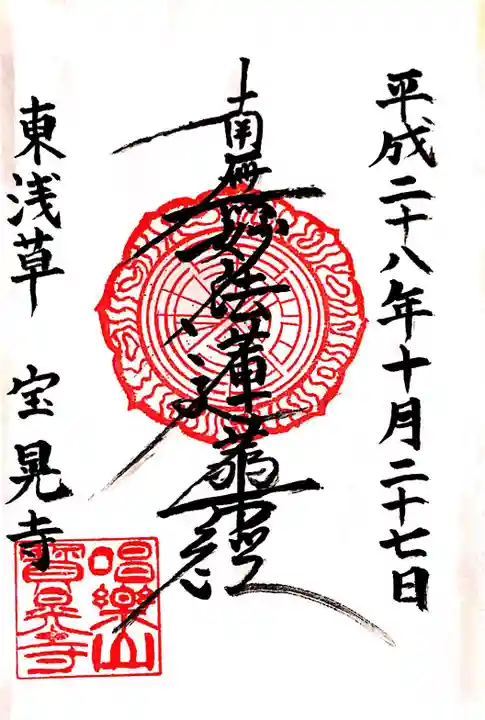 平成二十八年十月二十七日
南無妙法蓮華経
東浅草 宝晃寺
唱樂山
寳晃寺